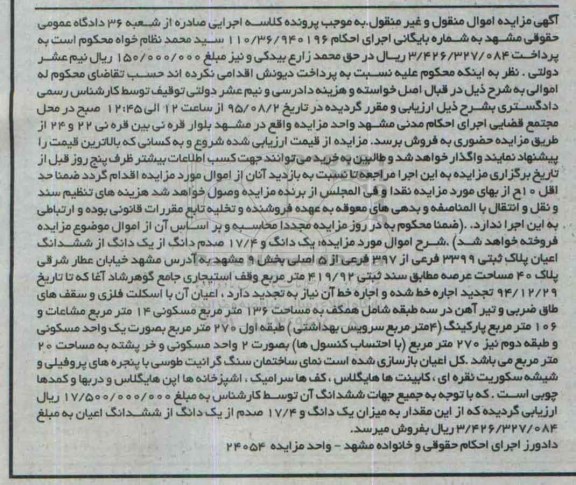 آگهی مزایده اموال منقول و غیر منقول.به موجب پرونده کلاسه اجرایی صادره از شعبه ۳۶ دادگاه عمومی
حقوقی مشهد به شماره بایگانی اجرای احکام ۱۱۰/۳۶/۹۴۰۱۹۶ سید محمد نظام خواه محکوم است به
پرداخت ۳/۴۲۶/۳۲۷/۰۸۴ ریال در حق محمد زارع بیدکی و نیز مبلغ ۱۵۰/۰۰۰/۰۰۰ ریال نیم عشر
دولتی . نظر به اینکه محکوم علیه نسبت به پرداخت دیونش اقدامی نکرده اند حسب تقاضای محکوم له
اموالی به شرح ذیل در قبال اصل خواسته و هزینه دادرسی و نیم عشر دولتی توقیف توسط کارشناس رسمی
دادگستری بشرح ذیل ارزیابی و مقرر گردیده در تاریخ ۹۵/۰۸/۲ از ساعت ۱۲ الی ۱۲:۴۵ صبح در محل
مجتمع قضایی اجرای احکام مدنی مشهد واحد مزایده واقع در مشهد بلوار قره نی بین قره نی ۲۲ و ۲۴ از
طریق مزایده حضوری به فروش برسد. مزایده از قیمت ارزیابی شده شروع و به کسانی که بالاترین قیمت را
پیشنهاد نمایند واگذار خواهد شد و طالبین به خرید می توانند جهت کسب اطلاعات بیشتر ظرف پنج روز قبل از
تاریخ برگزاری مزایده به این اجرا مراجعه تا نسبت به بازدید آنان از اموال مورد مزایده اقدام گردد ضمنا حد
اقل ۱۰ح از بهای مورد مزایده نقدا و فی المجلس از برنده مزایده وصول خواهد شد هزینه های تنظیم سند
و نقل و انتقال با المناصفه و بدهی های معوقه به عهده فروشنده و تخلیه تابع مقررات قانونی بوده و ارتباطی
به این اجرا ندارد. (ضمنا محکوم به در روز مزایده مجددا محاسبه و بر اساس آن از اموال موضوع مزایده
فروخته خواهد شد) .شرح اموال مورد مزایده: یک دانگ و ۱۷/۴ صدم دانگ از یک دانگ از ششدانگ
اعیان پلاک ثبتی ۳۳۹۹ فرعی از ۳۹۷ فرعی از ۵ اصلی بخش ۹ مشهد به آدرس مشهد خیابان عطار شرقی
پلاک ۴۰ مساحت عرصه مطابق سند ثبتی ۴۱۹/۹۲ متر مربع وقف استیجاری جامع گوهرشاد آغا که تا تاریخ
۹۴/۱۲/۲۹ تجدید اجاره خط شده و اجاره خط آن نیاز به تجدید دارد ، اعیان آن با اسکلت فلزی و سقف های
طاق ضربی و تیر آهن در سه طبقه شامل همکف به مساحت ۱۳۶ متر مربع مسکونی ۱۴ متر مربع مشاعات و
۱۰۶ متر مربع پارکینگ (۴متر مربع سرویس بهداشتی) طبقه اول ۲۷۰ متر مربع بصورت یک واحد مسکونی
و طبقه دوم نیز ۲۷۰ متر مربع (با احتساب کنسول ها) بصورت ۲ واحد مسکونی و خر پشته به مساحت ۲۰
متر مربع می باشد .کل اعیان بازسازی شده است نمای ساختمان سنگ گرانیت طوسی با پنجره های پروفیلی و
شیشه سکوریت نقره ای ، کابینت ها هایگلاس ، کف ها سرامیک ، اشپزخانه ها اپن هایگلاس و دربها و کمدها
چوبی است . که با توجه به جمیع جهات ششدانگ آن توسط کارشناس به مبلغ ۱۷/۵۰۰/۰۰۰/۰۰۰ ریال
ارزیابی گردیده که از این مقدار به میزان یک دانگ و ۱۷/۴ صدم از یک دانگ از ششدانگ اعیان به مبلغ
۳/۴۲۶/۳۲۷/۰۸۴ ریال بفروش میرسد.
دادورز اجرای احکام حقوقی و خانواده مشهد - واحد مزایده ۲۴۰۵۴